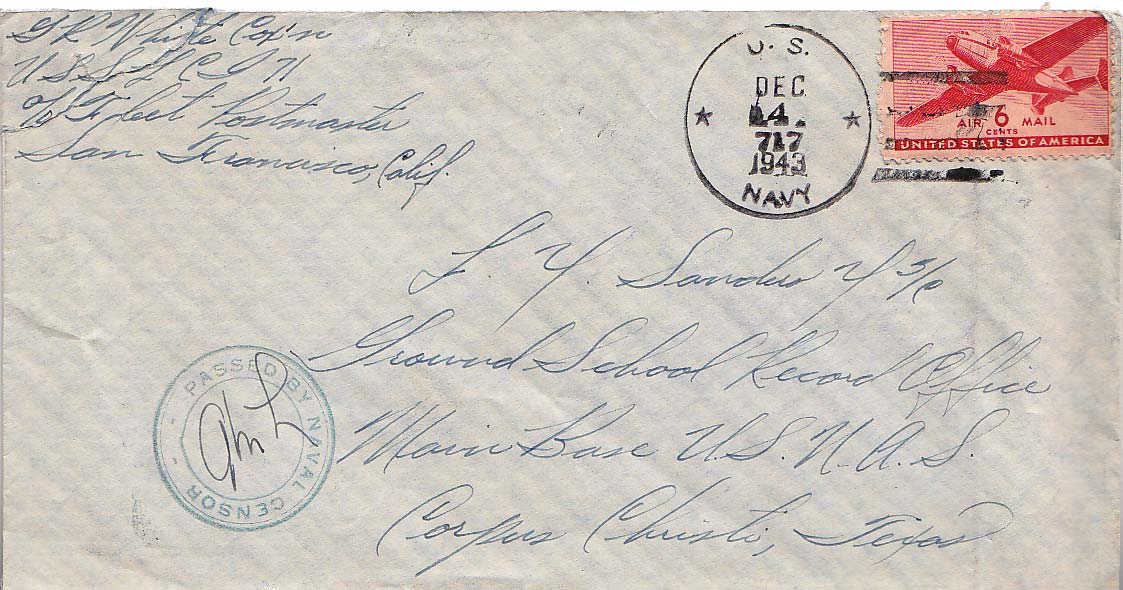 G R White Cox'n
U.S.S. LCI 71
c/o Fleet Postmaster
San Francisco, Calif.
U. S.
DEC
14.
1943
NAVY
AIR 6 MAIL
CENTS
UNITED STATES OF AMERICA
L. Y. Sanders Y 3/c
Ground School Record Office
Main Base U.S.N.A.S.
Corpus Christi, Texas
PASSED BY NAVAL CENSOR